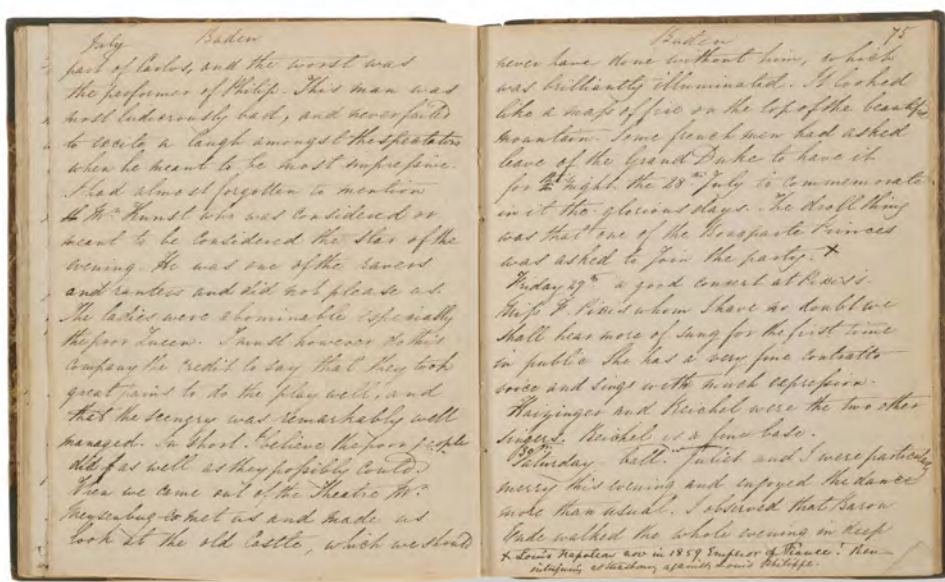 July Baden
part of Carlos, and the worst was
the performer of Philip. This man was
most ludicrously bad, and never failed
to excite a laugh amongst the spectators
when he meant to be most impressive.
I had almost forgotten to mention
Mr. Kunst who was considered or
meant to be considered the star of the
evening. He was one of the ravers
and ranters and did not please us.
The ladies were abominable especially
the poor Queen. I must however do this
company the credit to say that they took
great pains to do the play well, and
that the scenery was remarkably well
managed. In short I believe the poor people
did as well as they possibly could.
When we came out of the Theatre Mr.
Meysenbug met us and made us
look at the old Castle, which we should
Baden 75
never have done without him, which
was brilliantly illuminated. It looked
like a mass of fire on the top of the beautiful
mountain. Some french men had asked
leave of the Grand Duke to have it
for this night the 28th July to commemorate
in it the glorious days. The droll thing
was that one of the Bonaparte Princes
was asked to join the party. +
Friday 29th a good concert at Pixis's.
Miss F. Pixis whom I have no doubt we
shall hear more of sung for the first time
in public She has a very fine contralto
voice and sings with much expression.
Haizinger and Reichel were the two other
singers. Reichel is a fine base.
30th
Saturday - ball. Juliet and I were particularly
merry this evening and enjoyed the dance
more than usual. I observed that Baron
Ende walked the whole evening in deep
+ Louis Napoleon now in 1859 Emperor of France! then
intriguing at Strasbourg against Louis Philippe.